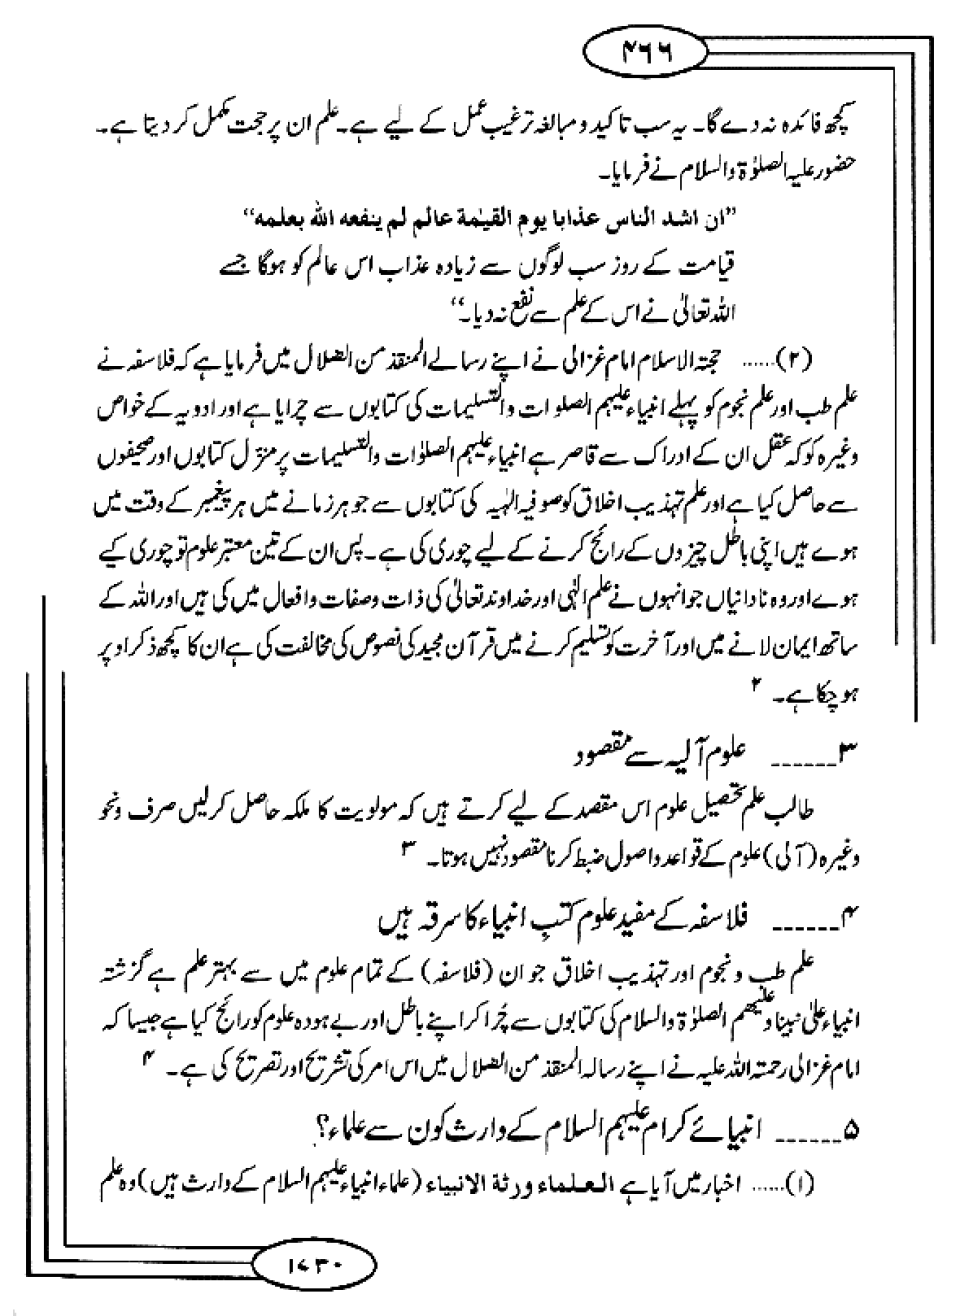 ۴۶۶
کچھ فائدہ نہ دے گا۔ یہ سب تاکید و مبالغہ ترغیب عمل کے لیے ہے۔ علم ان پر حجت مکمل کر دیتا ہے۔
حضور علیہ الصلوٰۃ والسلام نے فرمایا۔
”ان اشد الناس عذابا یوم القیٰمۃ عالم لم ینفعہ اللہ بعلمہ“
قیامت کے روز سب لوگوں سے زیادہ عذاب اس عالم کو ہوگا جسے
اللہ تعالیٰ نے اس کے علم سے نفع نہ دیا۔“
(۲)...... حجتہ الاسلام امام غزالی نے اپنے رسالے المنقذ من الضلال میں فرمایا ہے کہ فلاسفہ نے
علم طب اور علم نجوم کو پہلے انبیاء علیہم الصلوات والتسلیمات کی کتابوں سے چرایا ہے اور ادویہ کے خواص
وغیرہ کو کہ عقل ان کے ادراک سے قاصر ہے انبیاء علیہم الصلوٰات والتسلیمات پر منزل کتابوں اور صحیفوں
سے حاصل کیا ہے اور علم تہذیب اخلاق کو صوفیہ الٰہیہ کی کتابوں سے جو ہر زمانے میں ہر پیغمبر کے وقت میں
ہوے ہیں اپنی باطل چیزوں کے رائج کرنے کے لیے چوری کی ہے۔ پس ان کے تین معتبر علوم تو چوری کیے
ہوے اور وہ نادانیاں جو انہوں نے علم الٰہی اور خداوند تعالیٰ کی ذات و صفات و افعال میں کی ہیں اور اللہ کے
ساتھ ایمان لانے میں اور آخرت کو تسلیم کرنے میں قرآن مجید کی نصوص کی مخالفت کی ہے ان کا کچھ ذکر اوپر
ہو چکا ہے۔ ۲
۳______ علوم آلیہ سے مقصود
طالب علم تحصیل علوم اس مقصد کے لیے کرتے ہیں کہ مولویت کا ملکہ حاصل کرلیں صرف ونحو
وغیرہ (آلی) علوم کے قواعد و اصول ضبط کرنا مقصود نہیں ہوتا۔ ۳
۴______ فلاسفہ کے مفید علوم کتبِ انبیاء کا سرقہ ہیں
علم طب و نجوم اور تہذیب اخلاق جو ان (فلاسفہ) کے تمام علوم میں سے بہتر علم ہے گزشتہ
انبیاء علیٰ نبینا وعلیھم الصلوٰۃ والسلام کی کتابوں سے چُرا کر اپنے باطل اور بے ہودہ علوم کو رائج کیا ہے جیسا کہ
امام غزالی رحمتہ اللہ علیہ نے اپنے رسالہ المنقذ من الضلال میں اس امر کی تشریح اور تصریح کی ہے۔ ۴
۵______ انبیائے کرام علیہم السلام کے وارث کون سے علماء؟
(۱)...... اخبار میں آیا ہے العلماء ورثۃ الانبیاء (علماء انبیاء علیہم السلام کے وارث ہیں) وہ علم
۱۷۳۰